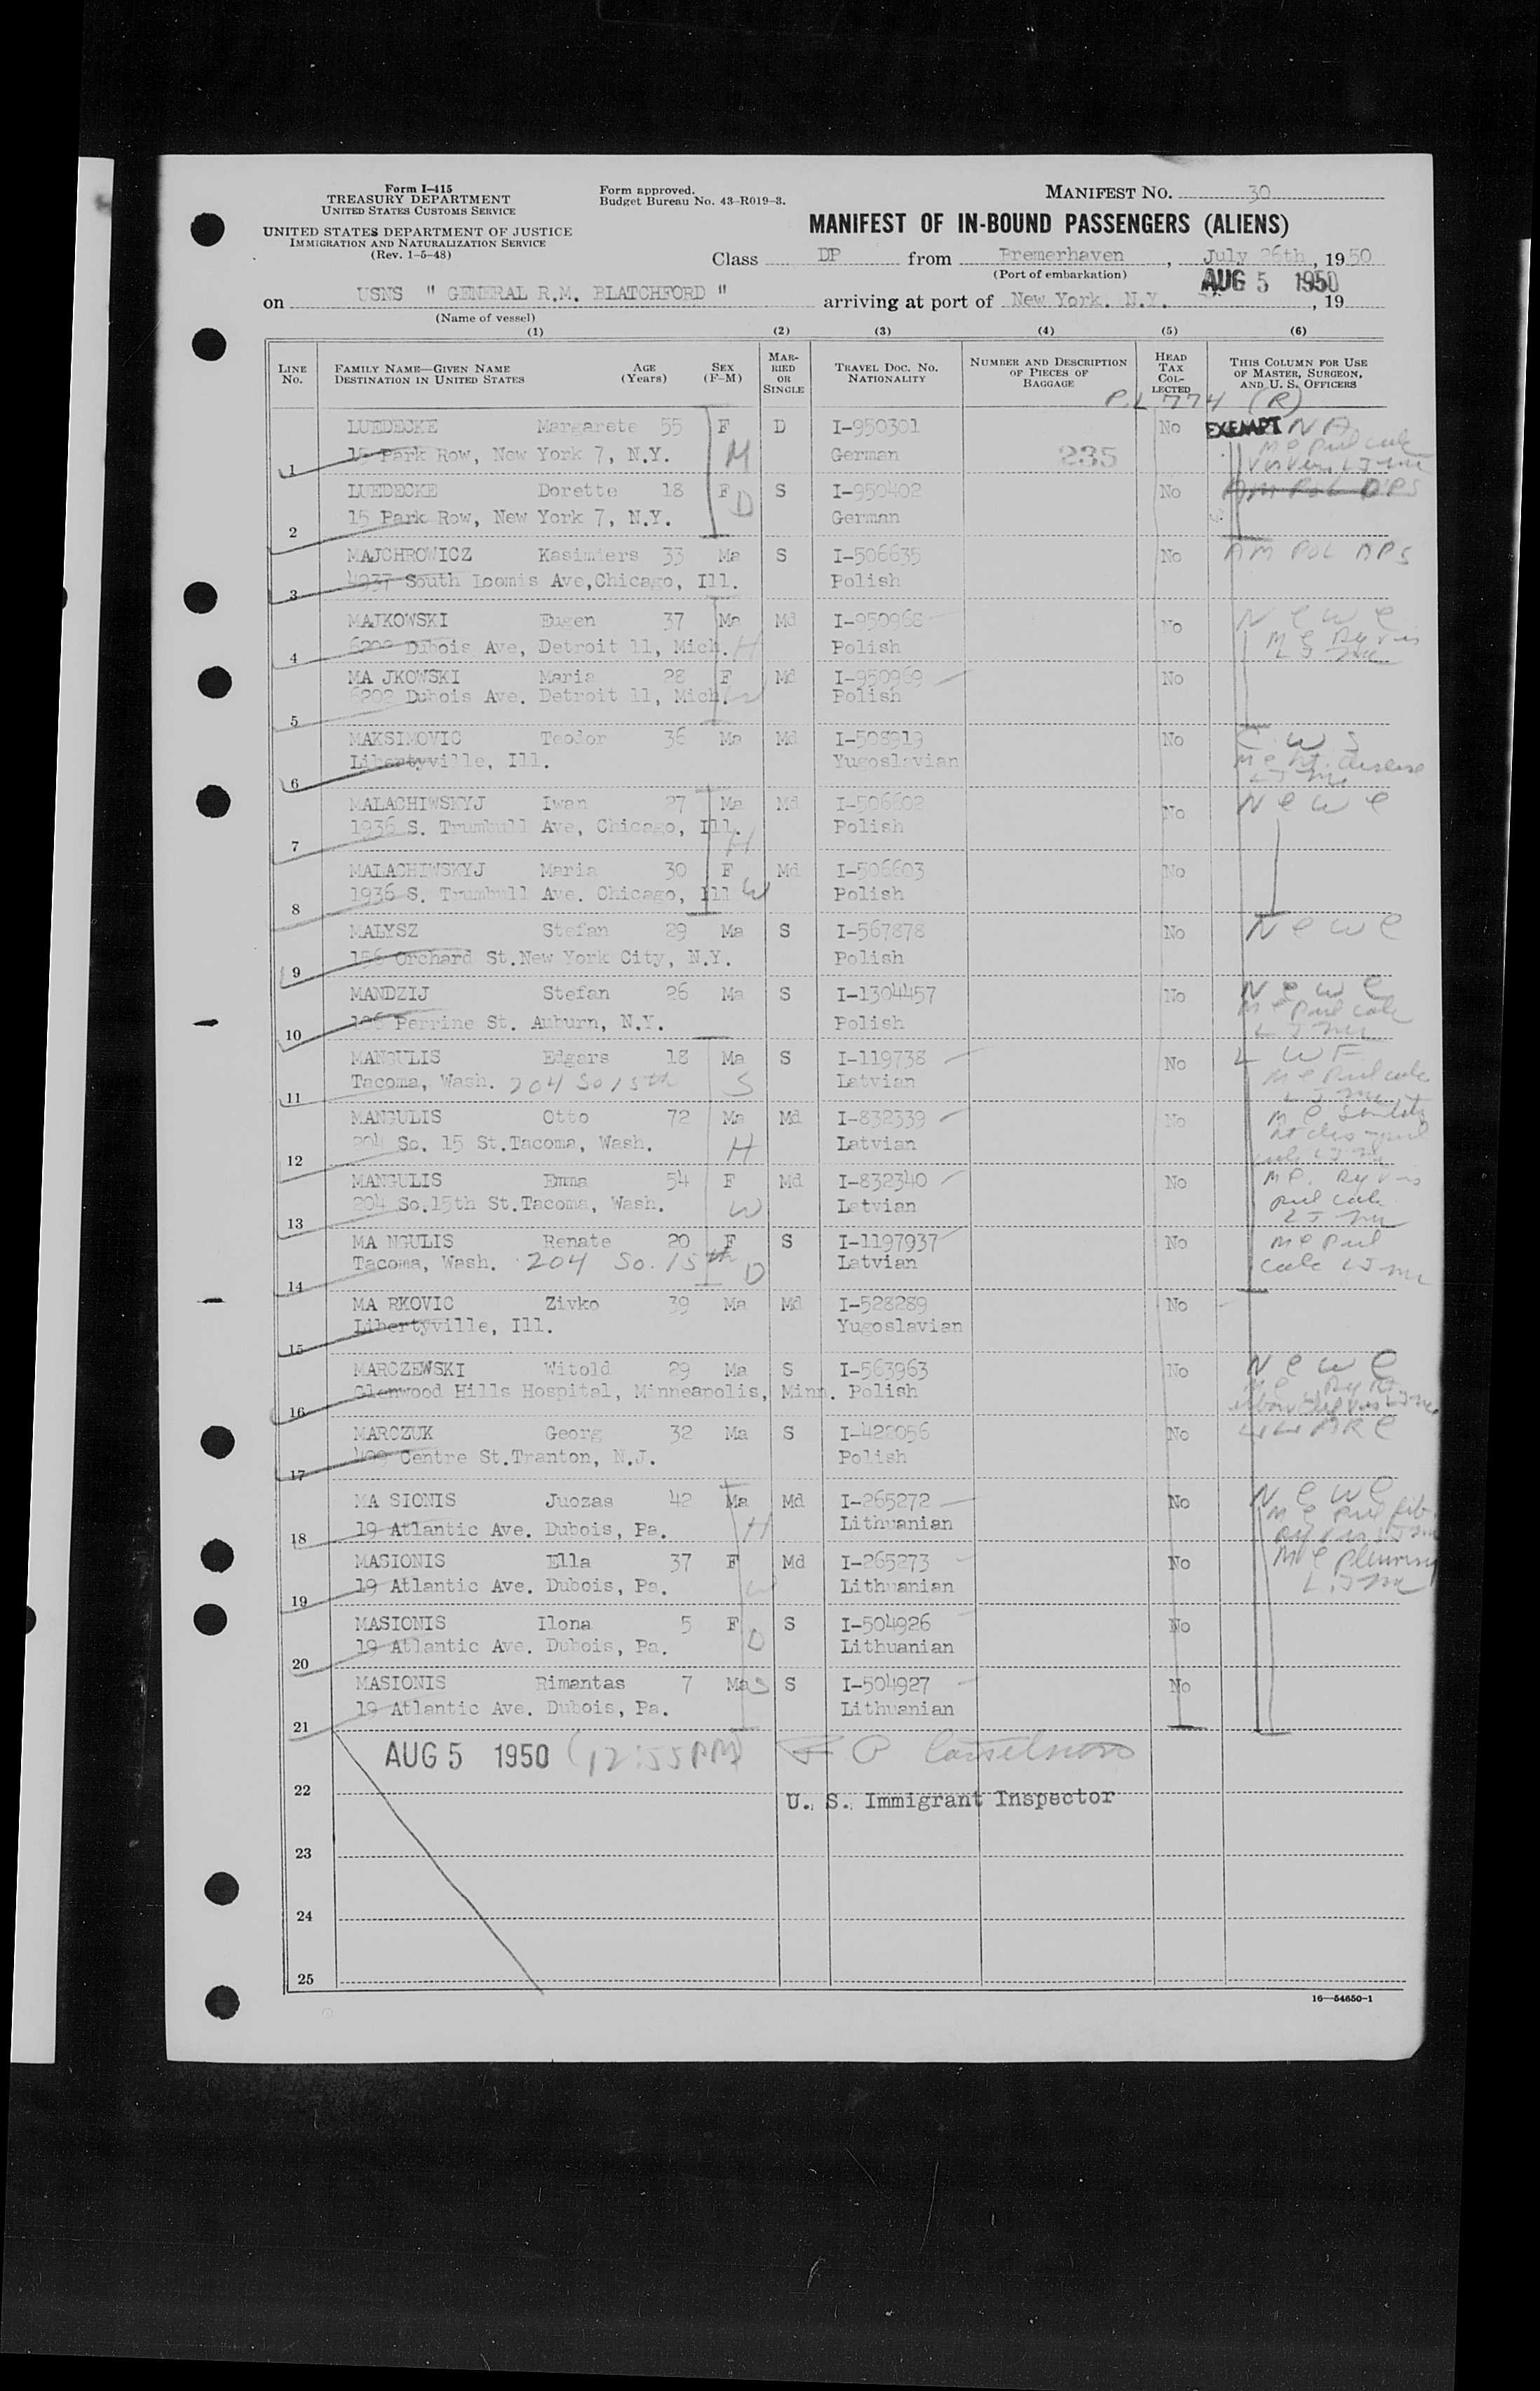 Form I-415
TREASURY DEPARTMENT
UNITED STATES CUSTOMS SERVICE
UNITED STATES DEPARTMENT OF JUSTICE
IMMIGRATION AND NATURALIZATION SERVICE
(Rev. 1-5-48)
Form approved.
Budget Bureau No. 43-R019-3.
MANIFEST NO. 30
MANIFEST OF IN-BOUND PASSENGERS (ALIENS)
Class DP from Bremerhaven, July 26th, 1950
(Port of embarkation)
AUG 5 1950
on USNS " GENERAL R.M. BLATCHFORD " arriving at port of New York. N.Y. , 19
(Name of vessel)
(1) (2) (3) (4) (5) (6)
LINE No. FAMILY NAME—GIVEN NAME DESTINATION IN UNITED STATES AGE (Years) SEX (F-M) MARRIED OR SINGLE TRAVEL DOC. NO. NATIONALITY NUMBER AND DESCRIPTION OF PIECES OF BAGGAGE HEAD TAX COLLECTED THIS COLUMN FOR USE OF MASTER, SURGEON, AND U. S. OFFICERS
P.L 774 (R)
LUEDECKE Margarete 55 F D I-950301 No EXEMPT NA
1 15 Park Row, New York 7, N.Y. M German 235
LUEDECKE Dorette 18 F D S I-950402 No AM POL DPS
2 15 Park Row, New York 7, N.Y. German
MAJCHROWICZ Kasimiers 33 Ma S I-506635 No AM POL APS
3 4937 South Loomis Ave,Chicago, Ill. Polish
MAJKOWSKI Eugen 37 Ma Md I-950968 No N C W C
4 6202 Dubois Ave, Detroit 11, Mich. H Polish
MA JKOWSKI Maria 28 F Md I-950969 No
5 6202 Dubois Ave. Detroit 11, Mich. W Polish
MAKSIMOVIC Teodor 36 Ma Md I-508919 No C W S
6 Libertyville, Ill. Yugoslavian
MALACHIWSKYJ Iwan 27 Ma Md I-506602 No N C W C
7 1936 S. Trumbull Ave, Chicago, Ill. H Polish
MALACHIWSKYJ Maria 30 F Md I-506603 No
8 1936 S. Trumbull Ave. Chicago, Ill W Polish
MALYSZ Stefan 29 Ma S I-567878 No N C W C
9 156 Orchard St.New York City, N.Y. Polish
MANDZIJ Stefan 26 Ma S I-1304457 No N C W C
10 126 Perrine St. Auburn, N.Y. Polish
MANGULIS Edgars 18 Ma S I-119738 No L W F
11 Tacoma, Wash. 204 So 15th S Latvian
MANGULIS Otto 72 Ma Md I-832339 No
12 204 So. 15 St.Tacoma, Wash. H Latvian
MANGULIS Emma 54 F Md I-832340 No
13 204 So.15th St.Tacoma, Wash. W Latvian
MA NGULIS Renate 20 F S I-1197937 No
14 Tacoma, Wash. 204 So. 15th D Latvian
MA RKOVIC Zivko 39 Ma Md I-528289 No
15 Libertyville, Ill. Yugoslavian
MARCZEWSKI Witold 29 Ma S I-563963 No N C W C
16 Glenwood Hills Hospital, Minneapolis, Minn. Polish
MARCZUK Georg 32 Ma S I-422056 No
17 409 Centre St.Tranton, N.J. Polish
MA SIONIS Juozas 42 Ma Md I-265272 No N C W C
18 19 Atlantic Ave. Dubois, Pa. H Lithuanian
MASIONIS Ella 37 F Md I-265273 No
19 19 Atlantic Ave. Dubois, Pa. W Lithuanian
MASIONIS Ilona 5 F S I-504926 No
20 19 Atlantic Ave. Dubois, Pa. D Lithuanian
MASIONIS Rimantas 7 Ma S S I-504927 No
21 19 Atlantic Ave. Dubois, Pa. Lithuanian
AUG 5 1950 (12:55 PM)
22 U. S. Immigrant Inspector
23
24
25
16—54650-1